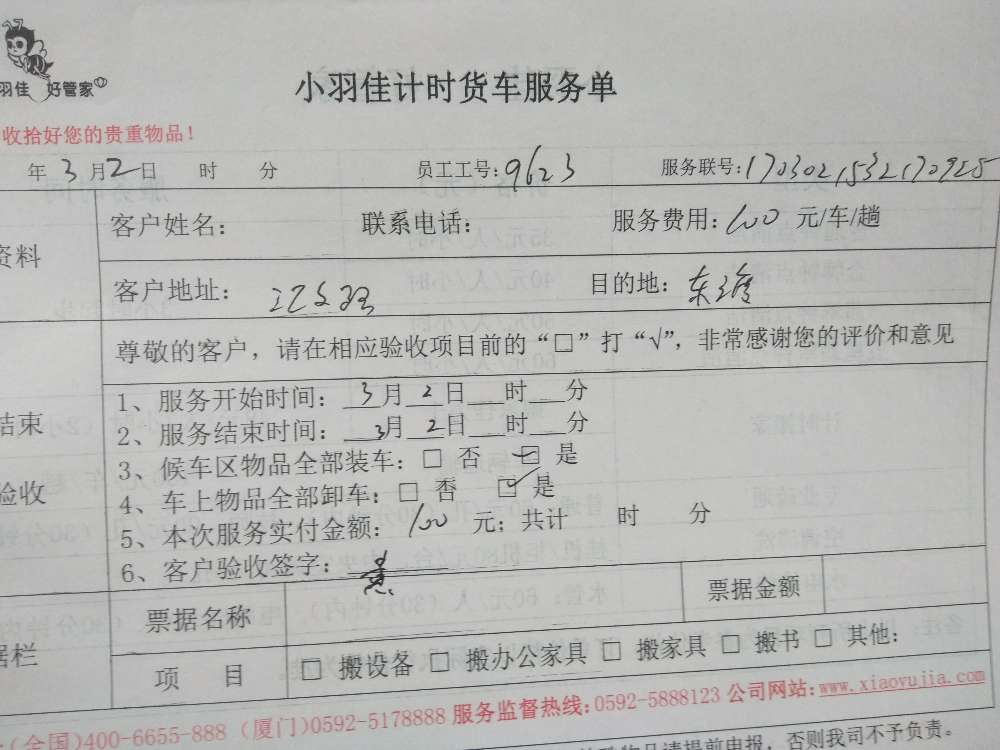 羽佳 好管家
小羽佳计时货车服务单
收拾好您的贵重物品！
年3月2日 时 分 员工工号：9623 服务联号：1703021532170925
资料
客户姓名： 联系电话： 服务费用：100 元/车/趟
客户地址： 目的地：东渡
尊敬的客户，请在相应验收项目前的“□”打“√”，非常感谢您的评价和意见
结束
验收
1、服务开始时间：3月2日 时 分
2、服务结束时间：3月2日 时 分
3、候车区物品全部装车：□ 否 ☑ 是
4、车上物品全部卸车：□ 否 ☑ 是
5、本次服务实付金额：100 元；共计 时 分
6、客户验收签字：
据栏
票据名称 票据金额
项 目 □ 搬设备 □ 搬办公家具 □ 搬家具 □ 搬书 □ 其他：
(全国)400-6655-888 (厦门)0592-5178888 服务监督热线：0592-5888123 公司网站：www.xiaoyujia.com
物品请提前申报，否则我司不予负责。